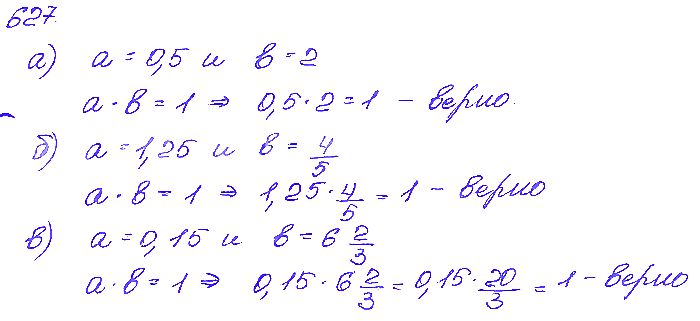 627.
а) a = 0,5 и b = 2
a · b = 1 ⇒ 0,5 · 2 = 1 – верно.
б) a = 1,25 и b = 4/5
a · b = 1 ⇒ 1,25 · 4/5 = 1 – верно
в) a = 0,15 и b = 6 2/3
a · b = 1 ⇒ 0,15 · 6 2/3 = 0,15 · 20/3 = 1 – верно